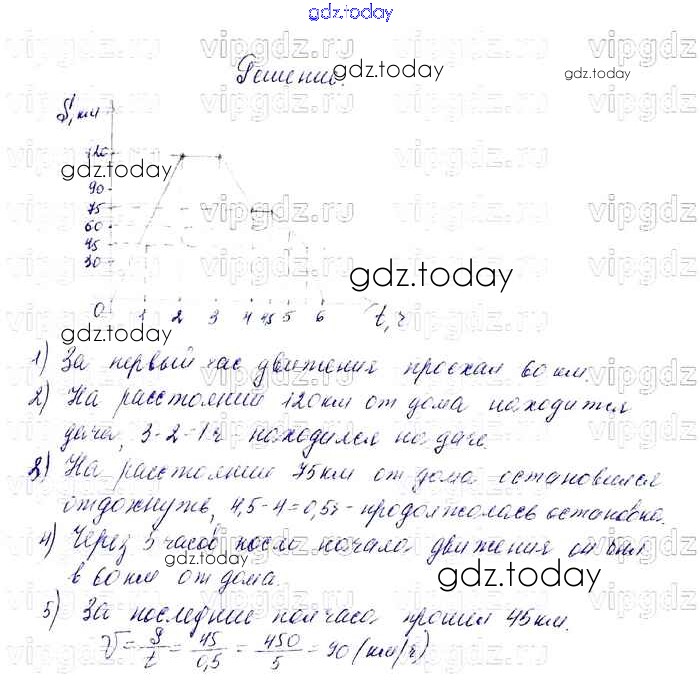 gdz.today
Решение.
S, км
120
90
75
60
45
30
0 1 2 3 4 4,5 5 6 t, ч
1) За первый час движения проехал 60 км.
2) На расстоянии 120 км от дома находится
дача, 3-2=1 ч - находился на даче.
3) На расстоянии 75 км от дома остановился
отдохнуть, 4,5-4=0,5 ч - продолжалась остановка.
4) Через 5 часов после начала движения он был
в 60 км от дома.
5) За последние полчаса прошёл 45 км.
V = S/t = 45/0,5 = 450/5 = 90 (км/ч)
gdz.today
gdz.today
gdz.today
gdz.today
gdz.today
gdz.today
gdz.today
vipgdz.ru